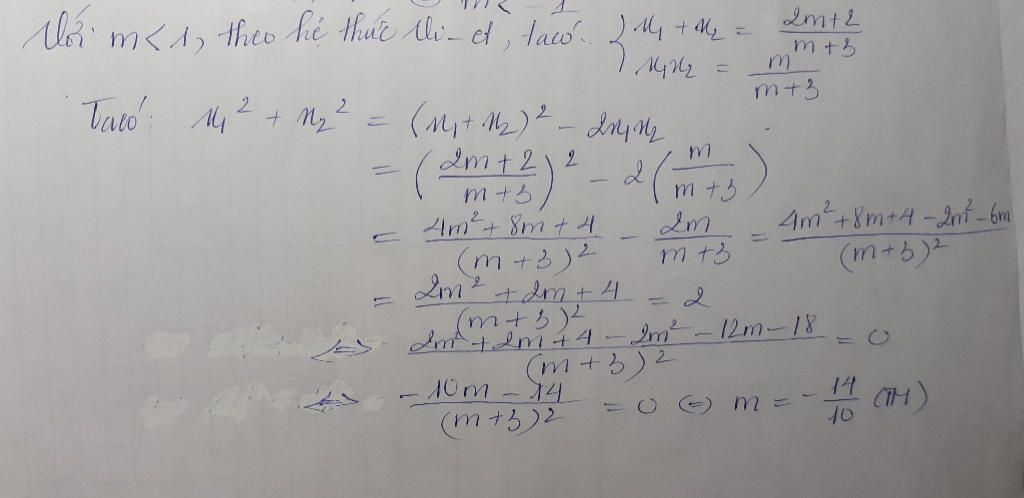 m < 1
Với m < 1, theo hệ thức Vi-et, ta có: { x₁ + x₂ = (2m+2)/(m+3)
x₁x₂ = m/(m+3)
Ta có: x₁² + x₂² = (x₁ + x₂)² - 2x₁x₂
= ((2m+2)/(m+3))² - 2(m/(m+3))
= (4m² + 8m + 4)/(m+3)² - 2m/(m+3) = (4m² + 8m + 4 - 2m² - 6m)/(m+3)²
= (2m² + 2m + 4)/(m+3)² = 2
⇔ (2m² + 2m + 4 - 2m² - 12m - 18)/(m+3)² = 0
⇔ (-10m - 14)/(m+3)² = 0 ⇔ m = -14/10 (TM)